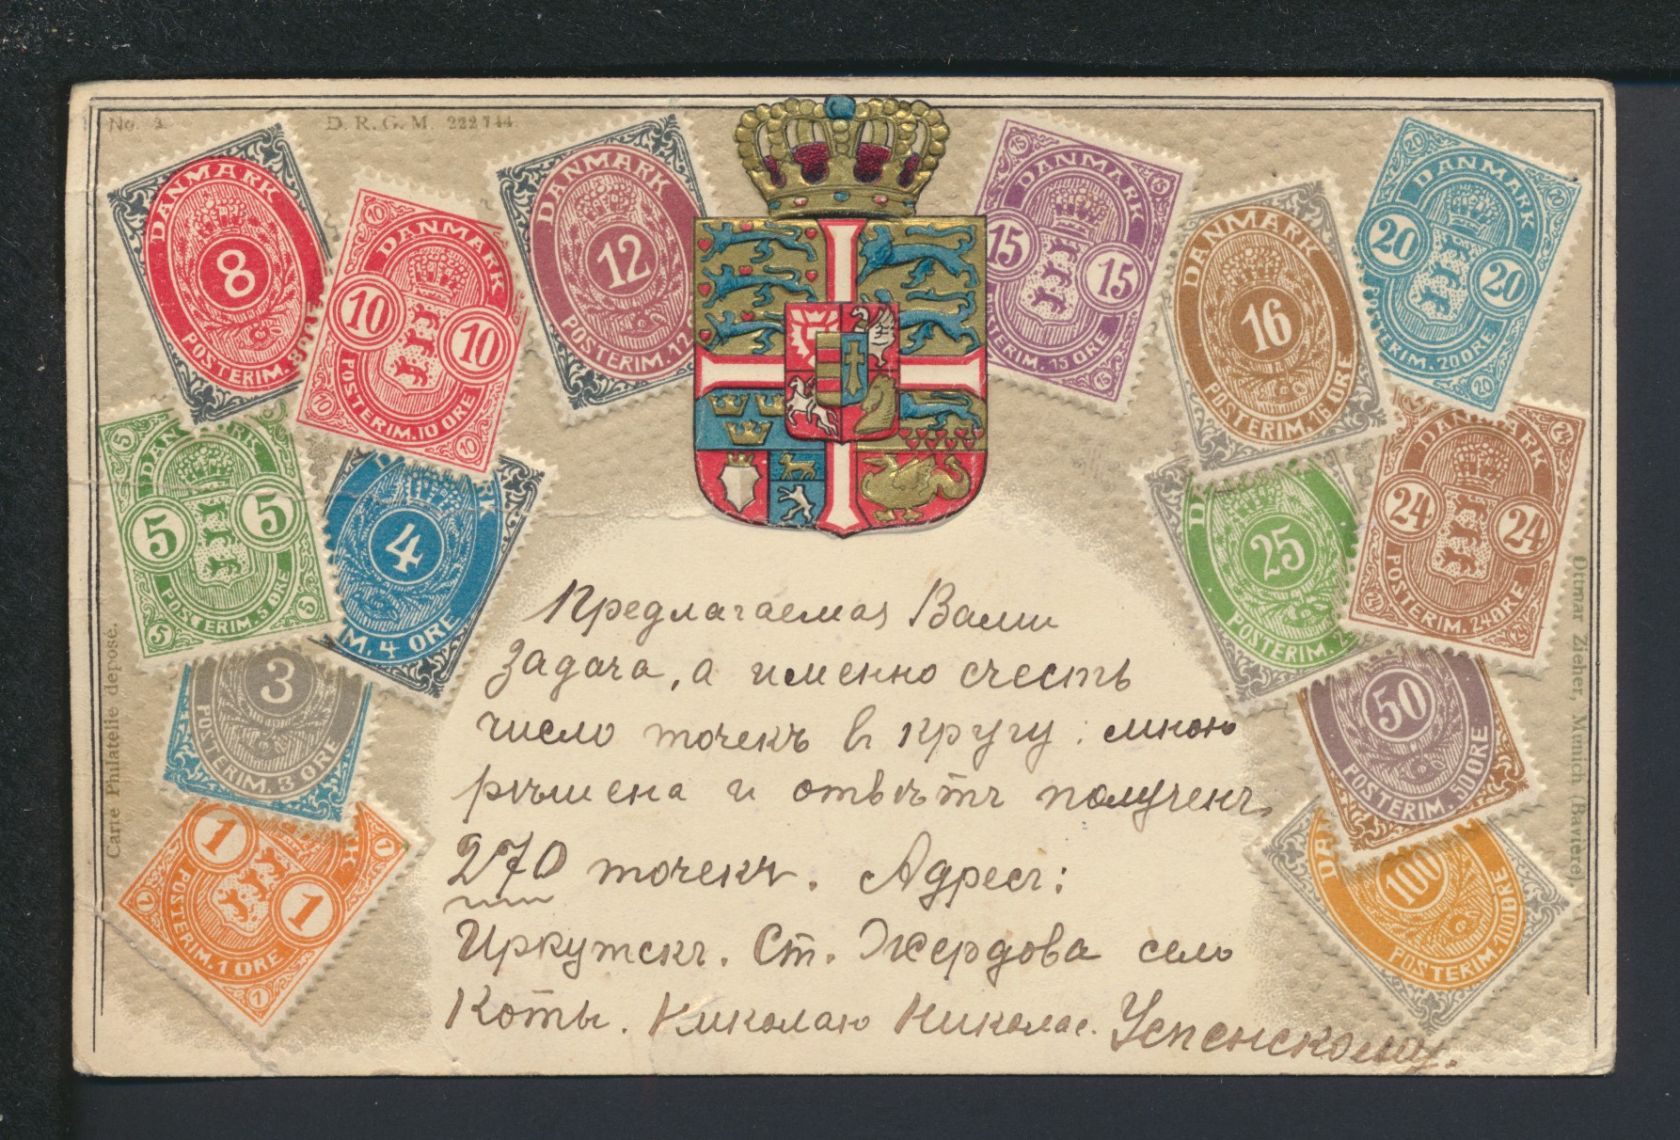 No. 3
D. R. G. M. 222744.
DANMARK
8
POSTERIM.
DANMARK
10 10
POSTERIM. 10 ORE
DANMARK
12
POSTERIM. 12
DANMARK
15 15
POSTERIM. 15 ORE
DANMARK
16
POSTERIM. 16 ORE
DANMARK
20 20
POSTERIM. 20 ORE
DANMARK
5 5
POSTERIM. 5 ORE
4
M. 4 ORE
25
POSTERIM. 2
DANMARK
24 24
POSTERIM. 24 ORE
3
POSTERIM. 3 ORE
50
POSTERIM. 50 ORE
1 1
POSTERIM. 1 ORE
100
POSTERIM. 100 ORE
Carte Philatelie déposé.
Ottmar Zieher, Munich (Bavière)
Предлагаемая Вами
Задача, а именно счесть
число точекъ въ кругу: мною
рѣшена и отвѣтъ полученъ
270 точекъ. Адресъ:
Иркутскъ. Ст. Жердова село
Коты. Николаю Николае. Успенскому.